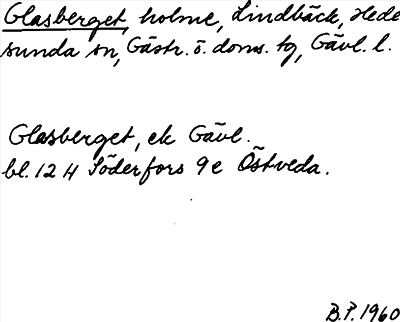 Glasberget, holme, Lindbäck, Hede
sunda sn, Gästr. ö. doms. tg, Gävl. l.
Glasberget, ek Gävl.
bl. 12 H Söderfors 9 e Östveda.
B.P. 1960